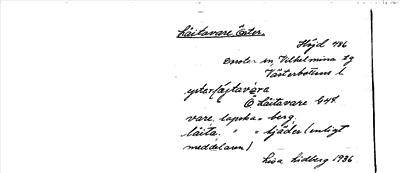 Láitavare Öster.
Höjd 786
in, Vilhelmina sg
Västerbottens l
Ö Láitavare G48
vare, lapska = berg.
láita " = fjäder (enligt
meddelaren)
Lisa Lidberg 1936